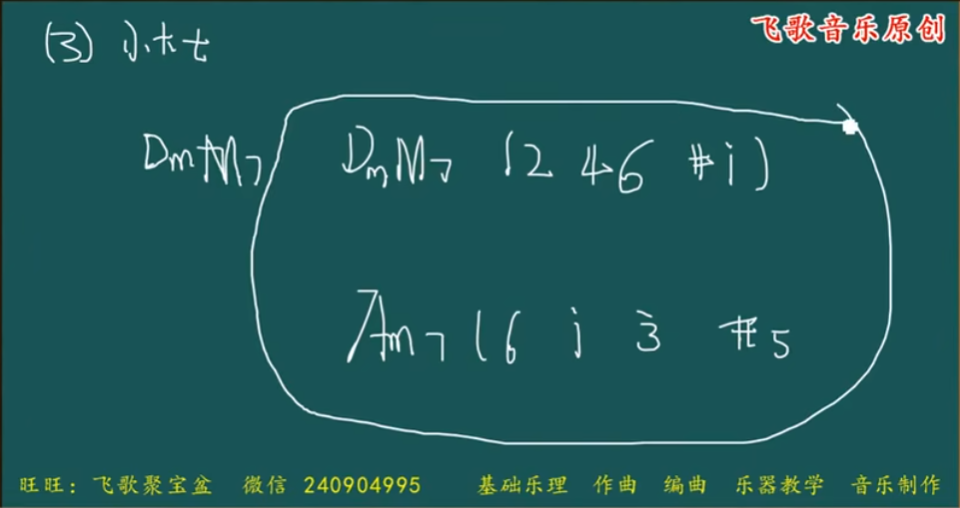 飞歌音乐原创
(3) 小大七
DmM7 DmM7 (2 4 6 #i)
Am7 (6 i 3 #5
旺旺：飞歌聚宝盆 微信 240904995 基础乐理 作曲 编曲 乐器教学 音乐制作